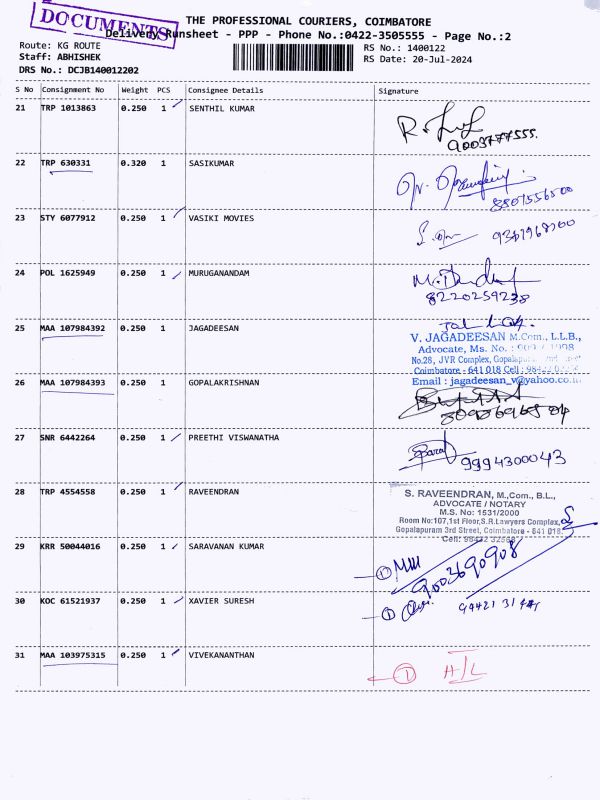 DOCUMENTS
THE PROFESSIONAL COURIERS, COIMBATORE
Delivery Runsheet - PPP - Phone No.:0422-3505555 - Page No.:2
Route: KG ROUTE
Staff: ABHISHEK
DRS No.: DCJB140012202
RS No.: 1400122
RS Date: 20-Jul-2024
S No Consignment No Weight PCS Consignee Details Signature
21 TRP 1013863 0.250 1 SENTHIL KUMAR
9003777555.
22 TRP 630331 0.320 1 SASIKUMAR
23 STY 6077912 0.250 1 VASIKI MOVIES
24 POL 1625949 0.250 1 MURUGANANDAM
8220259238
25 MAA 107984392 0.250 1 JAGADEESAN
V. JAGADEESAN M.Com., L.L.B.,
Advocate, Ms. No. :
No.28, JVR Complex,
Coimbatore - 641 018 Cell :
Email : jagadeesan_v@yahoo.co.in
26 MAA 107984393 0.250 1 GOPALAKRISHNAN
27 SNR 6442264 0.250 1 PREETHI VISWANATHA
9994300043
28 TRP 4554558 0.250 1 RAVEENDRAN
S. RAVEENDRAN, M.,Com., B.L.,
ADVOCATE / NOTARY
M.S. No: 1531/2000
Room No:107,1st Floor,S.R.Lawyers Complex,
Gopalapuram 3rd Street, Coimbatore - 641 018.
Cell: 98422 32568
29 KRR 50044016 0.250 1 SARAVANAN KUMAR
① 9003690908
30 KOC 61521937 0.250 1 XAVIER SURESH
①
31 MAA 103975315 0.250 1 VIVEKANANTHAN
① H/L